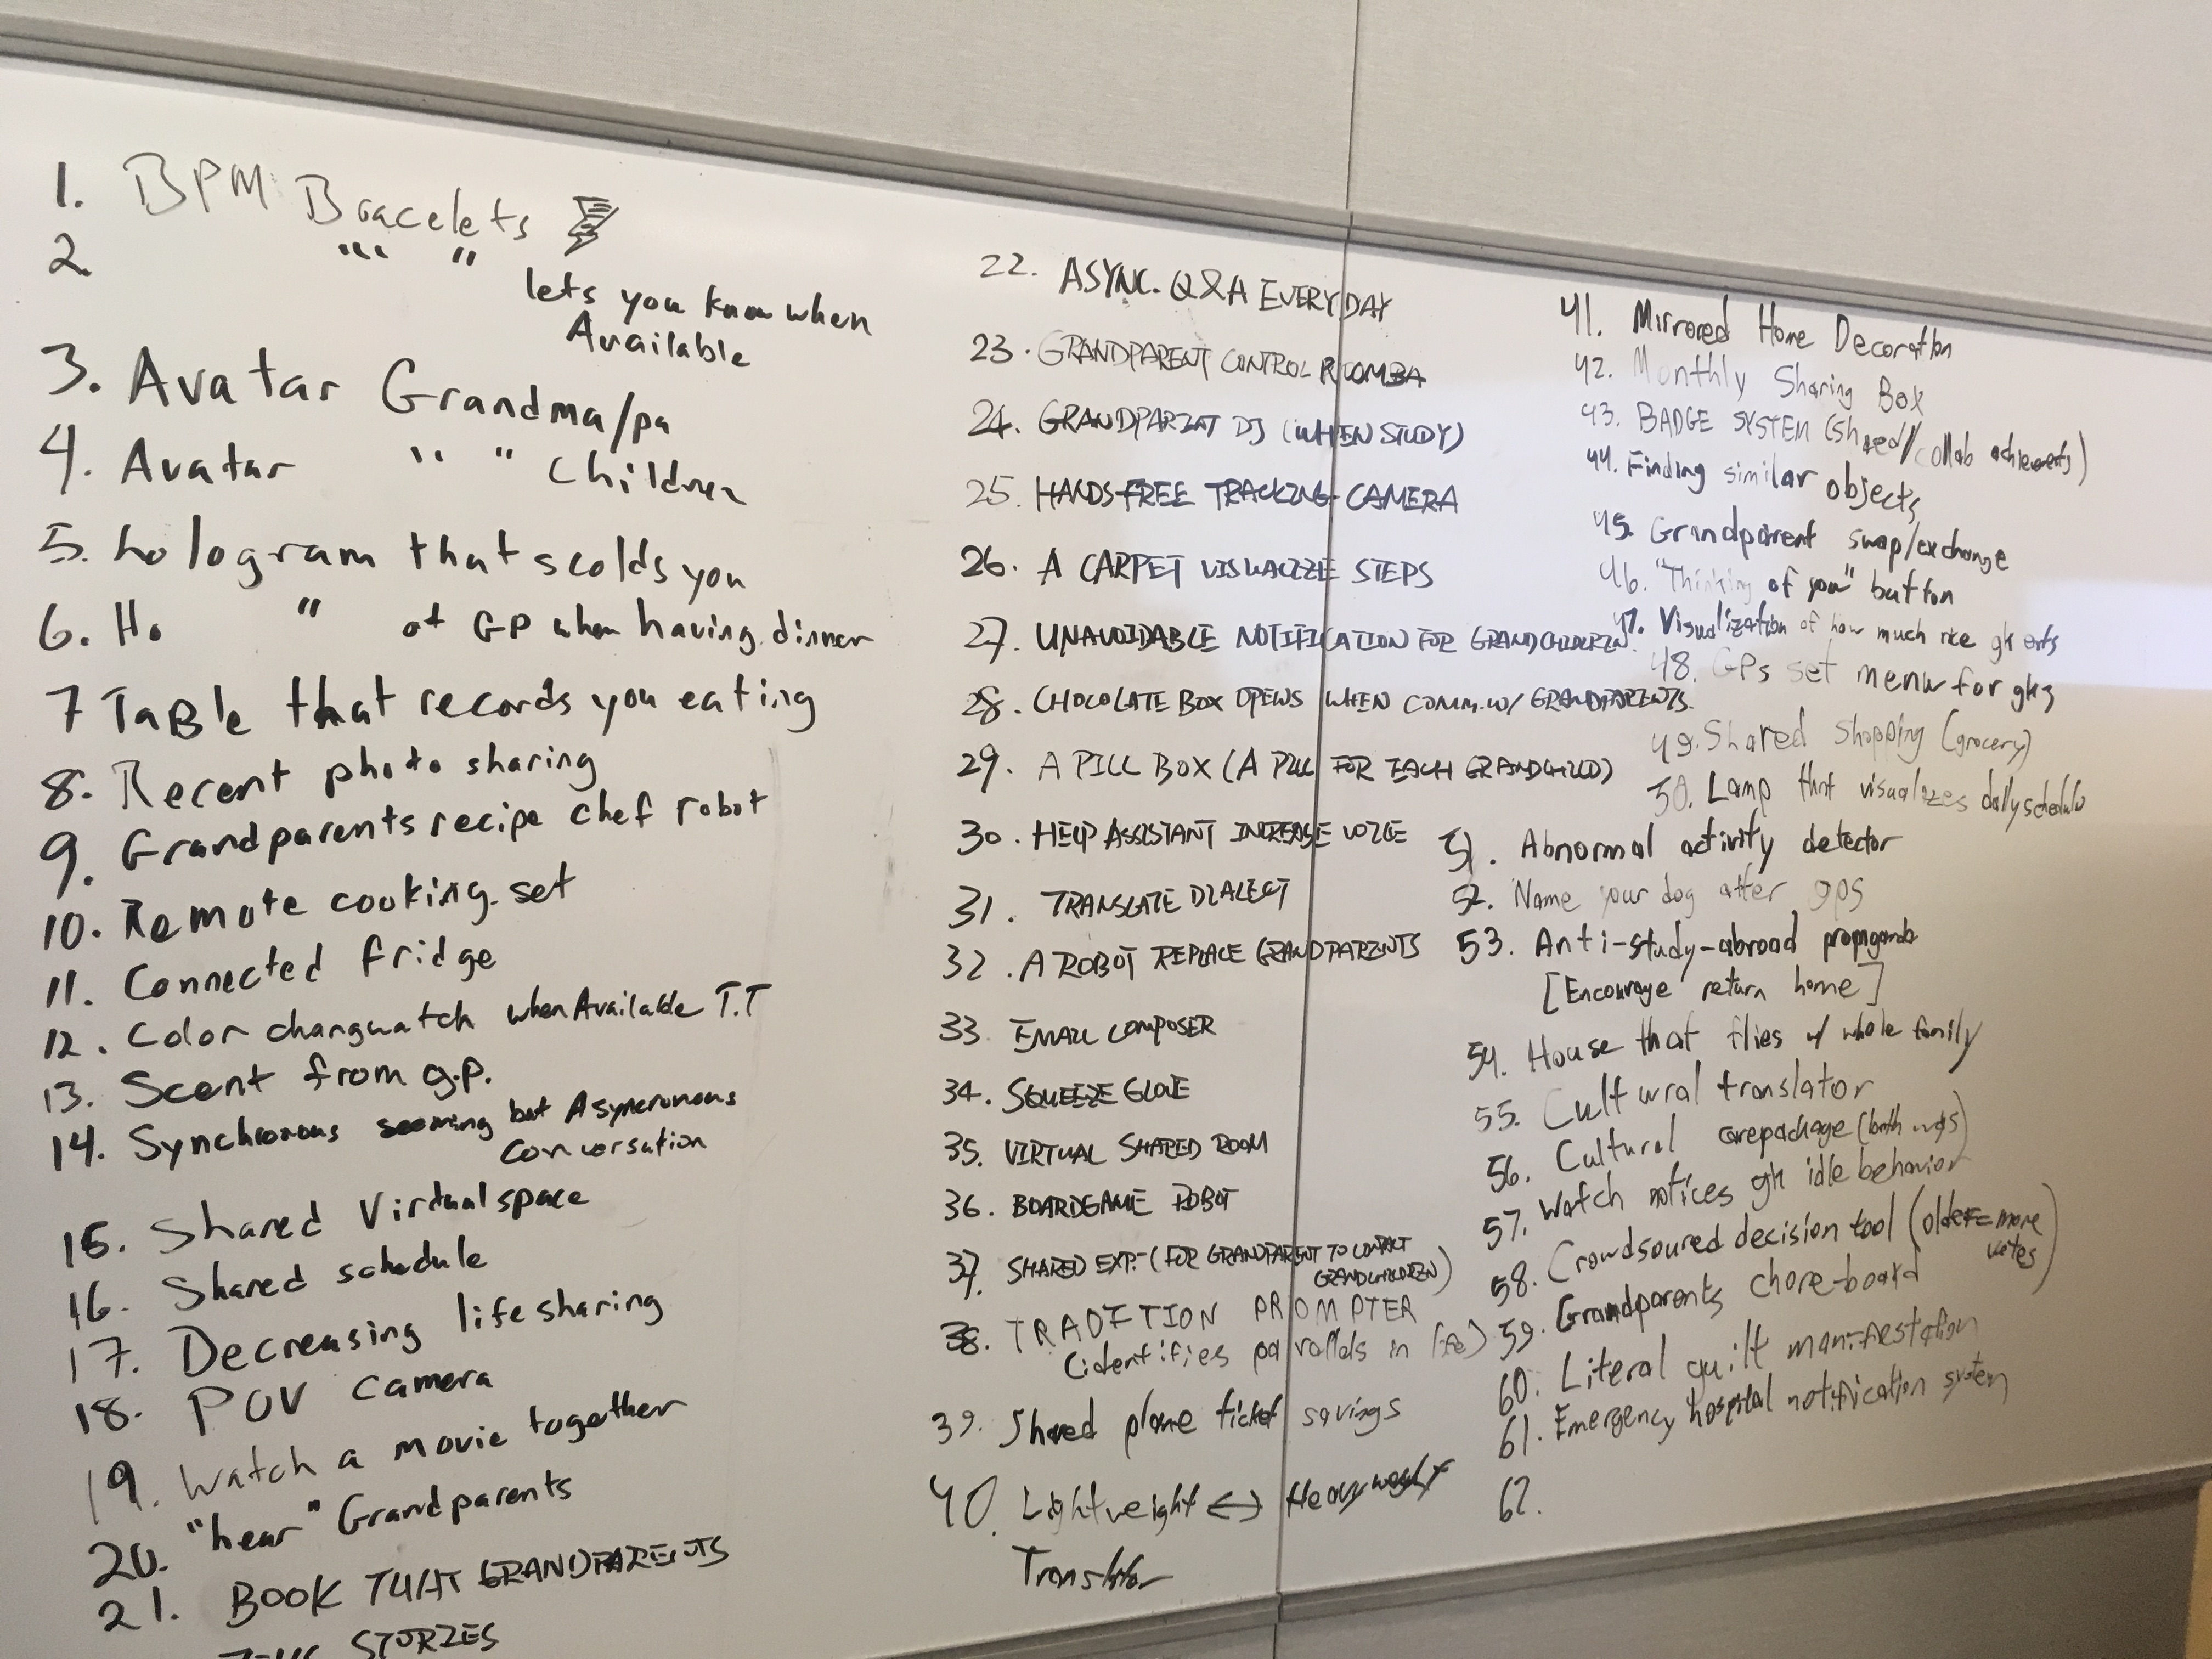 1. BPM Bracelets
2 "" " lets you know when
Available
3. Avatar Grandma/pa
4. Avatar " " Children
5. hologram that scolds you
6. Ho " at GP when having dinner
7 TaBle that records you eating
8. Recent photo sharing
9. Grandparents recipe chef robot
10. Remote cooking set
11. Connected fridge
12. Color changwatch when Available T.T
13. Scent from g.p.
14. Synchronous seeming but Asyncronous
Conversation
15. Shared Virtual space
16. Shared schedule
17. Decreasing life sharing
18. POV camera
19. Watch a movie together
20. "hear" Grandparents
21. BOOK THAT GRANDPARENTS
STORIES
22. ASYNC. Q&A EVERYDAY
23. GRANDPARENT CONTROL ROOMBA
24. GRANDPARENT DJ (WHEN STUDY)
25. HANDS-FREE TRACKING CAMERA
26. A CARPET VISUALIZE STEPS
27. UNAVOIDABLE NOTIFICATION FOR GRANDCHILDREN.
28. CHOCOLATE BOX OPENS WHEN COMM. W/ GRANDPARENTS.
29. A PILL BOX (A PILL FOR EACH GRANDCHILD)
30. HELP ASSISTANT INCREASE VOICE
31. TRANSLATE DIALECT
32. A ROBOT REPLACE GRANDPARENTS
33. EMAIL COMPOSER
34. SQUEEZE GLOVE
35. VIRTUAL SHARED ROOM
36. BOARDGAME ROBOT
37. SHARED EXP. (FOR GRANDPARENT TO CONTACT
GRANDCHILDREN)
38. TRADITION PROMPTER
(identifies parallels in life)
39. Shared plane ticket savings
40. Lightweight <-> Heavyweight
Translator
41. Mirrored Home Decoration
42. Monthly Sharing Box
43. BADGE SYSTEM (shared/collab achievements)
44. Finding similar objects
45. Grandparent swap/exchange
46. "Thinking of you" button
47. Visualization of how much rice gk eats
48. GPs set menu for gks
49. Shared shopping (grocery)
50. Lamp that visualizes daily schedule
51. Abnormal activity detector
52. Name your dog after gps
53. Anti-study-abroad propaganda
[Encourage return home]
54. House that flies w/ whole family
55. Cultural translator
56. Cultural carepackage (both ways)
57. Watch notices gk idle behavior
58. Crowdsoured decision tool (older = more
votes)
59. Grandparents chore-board
60. Literal quilt manifestation
61. Emergency hospital notification system
62.